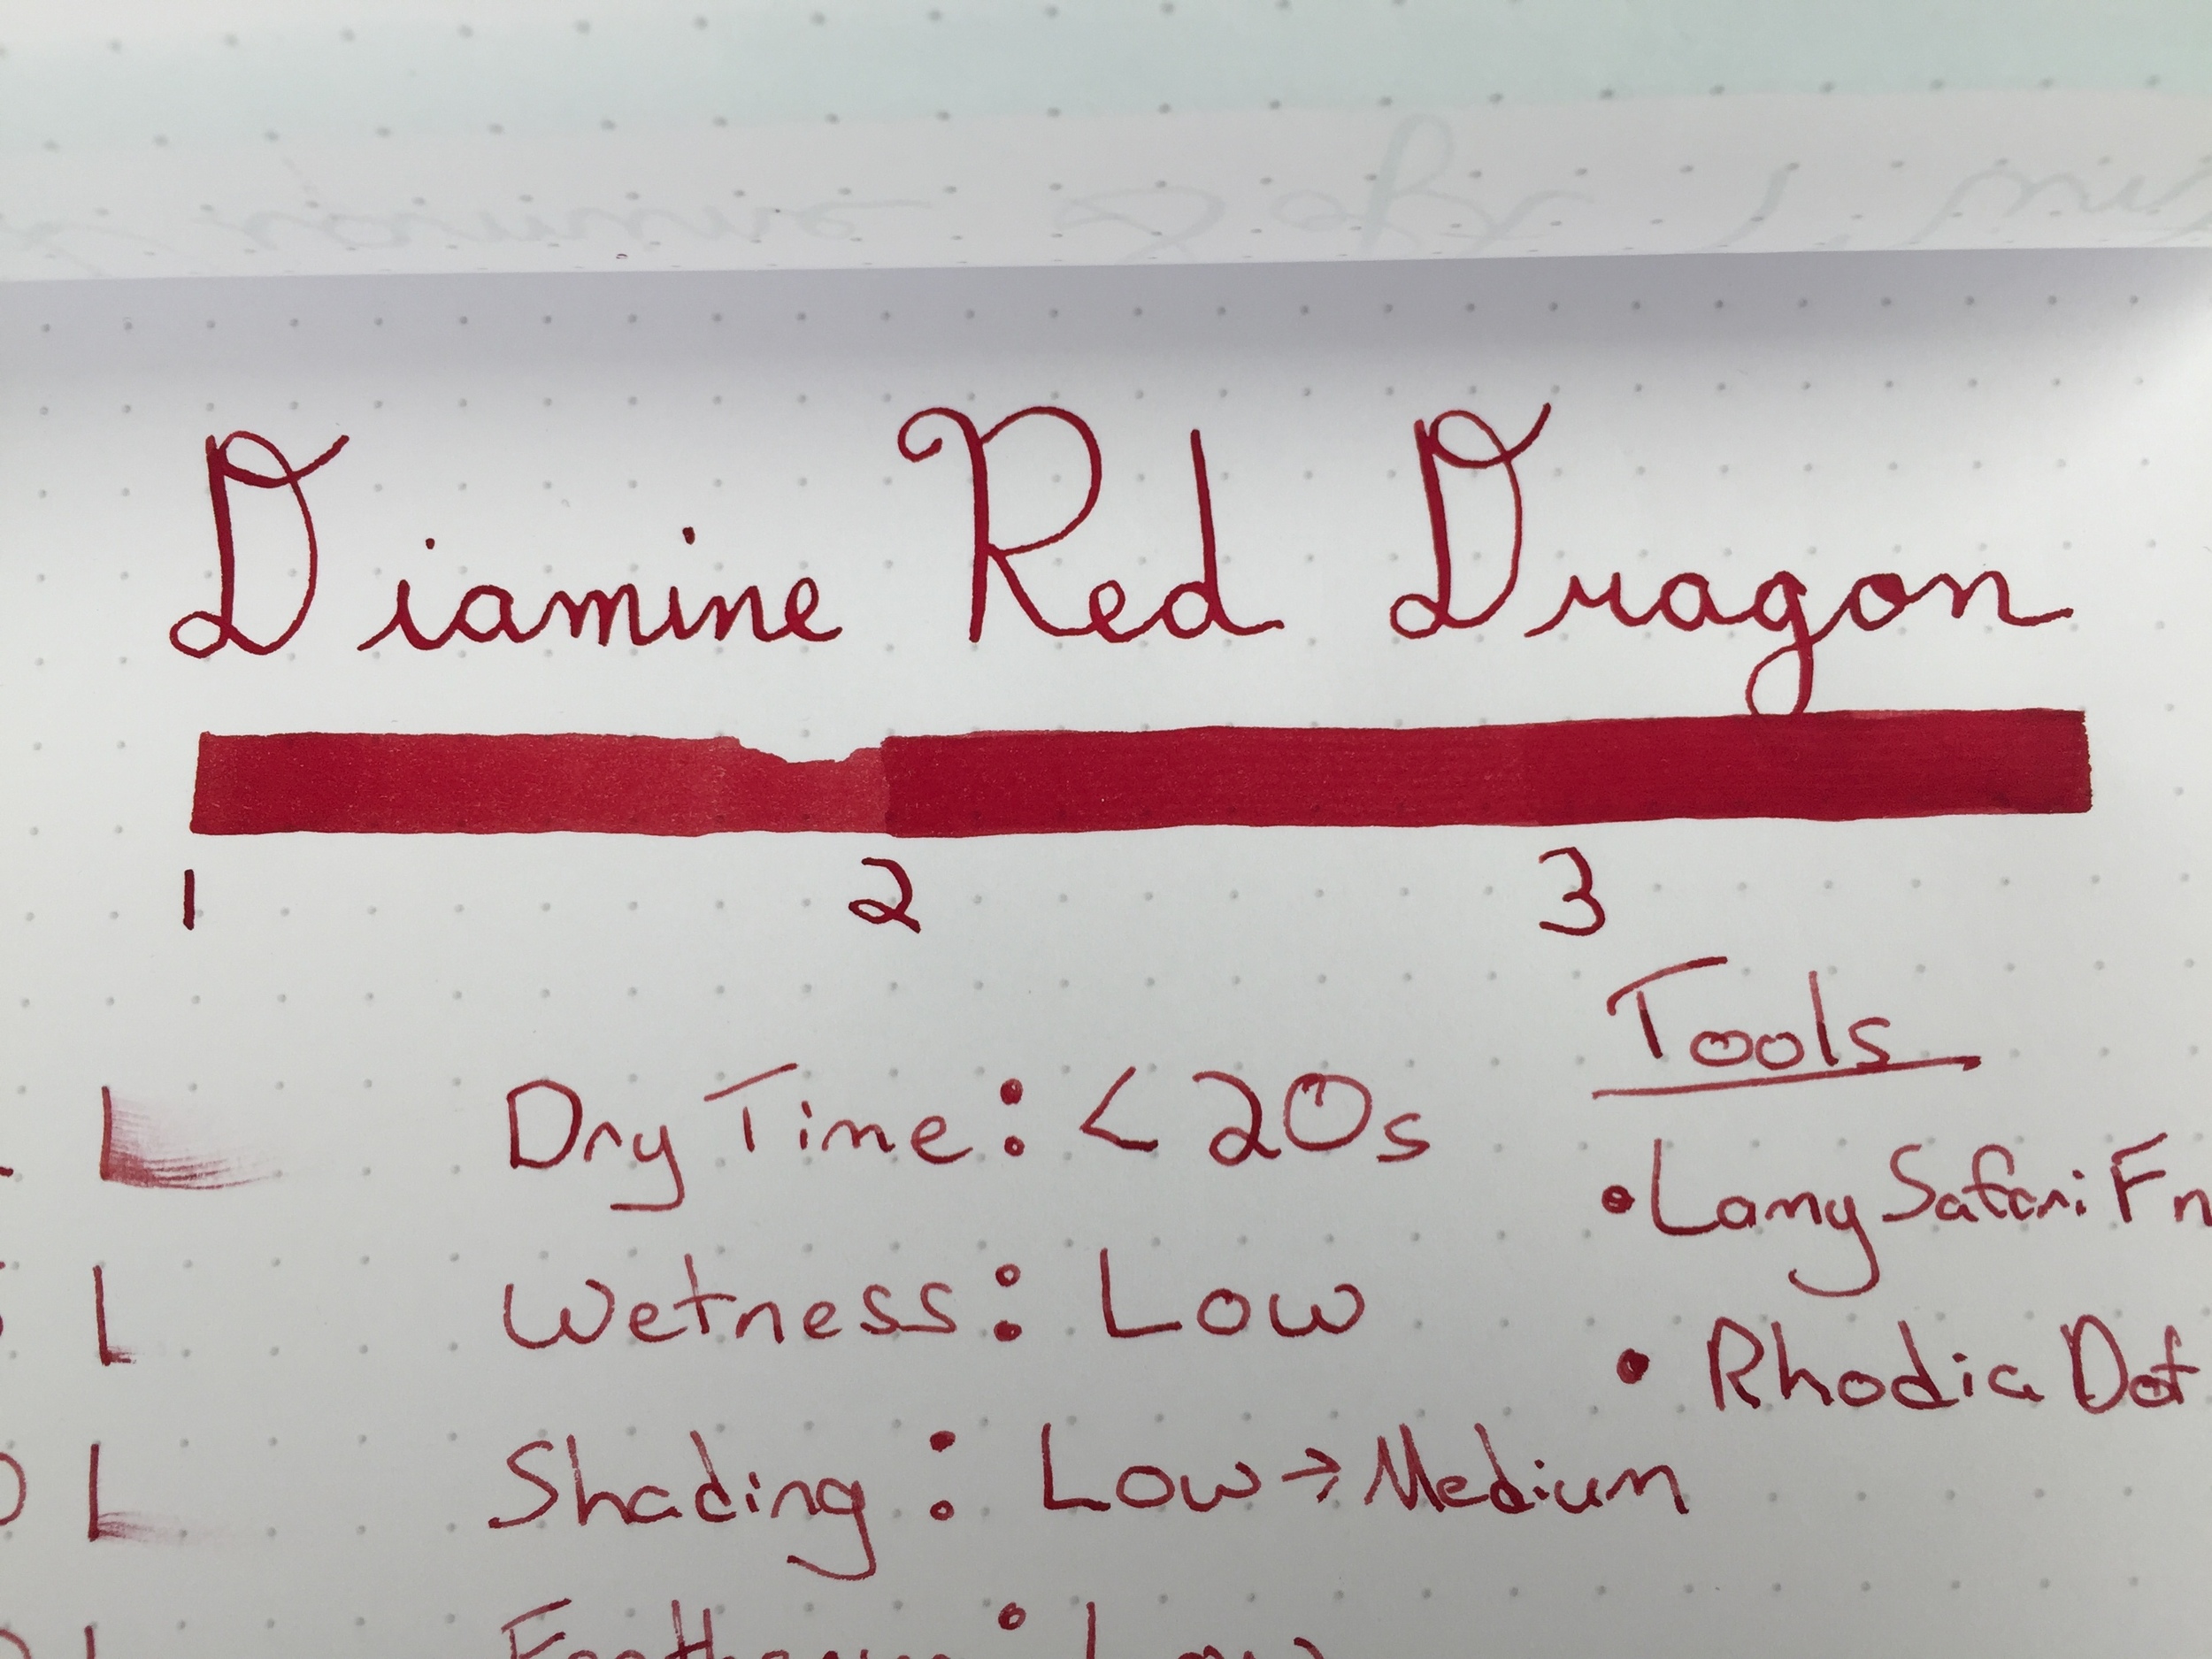 Diamine Red Dragon
1 2 3
Tools
L Dry Time: < 20s
• Lamy Safari F
L Wetness: Low
• Rhodia Dot
L Shading: Low → Medium
: Low